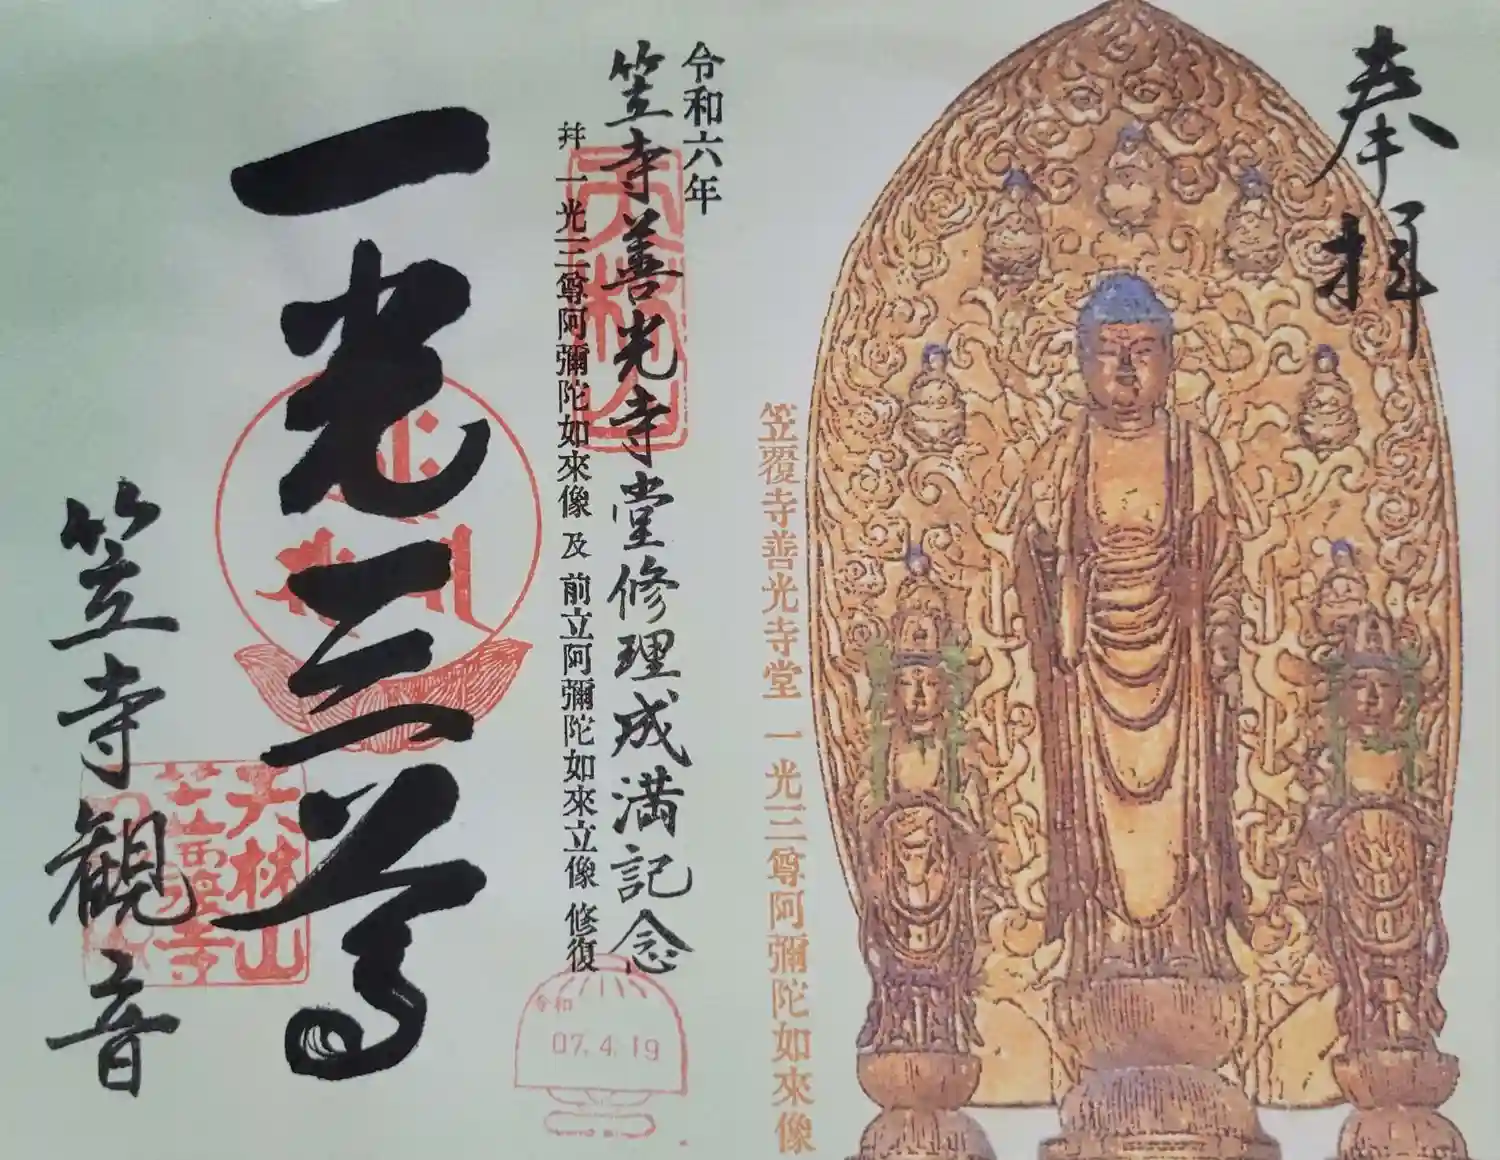 奉拝
笠覆寺善光寺堂 一光三尊阿彌陀如來像
令和六年
笠寺善光寺堂修理成満記念
幷 一光三尊阿彌陀如來像 及 前立阿彌陀如來立像 修復
天林山
令和
07.4.19
一光三尊
天林山
笠覆寺
笠寺観音